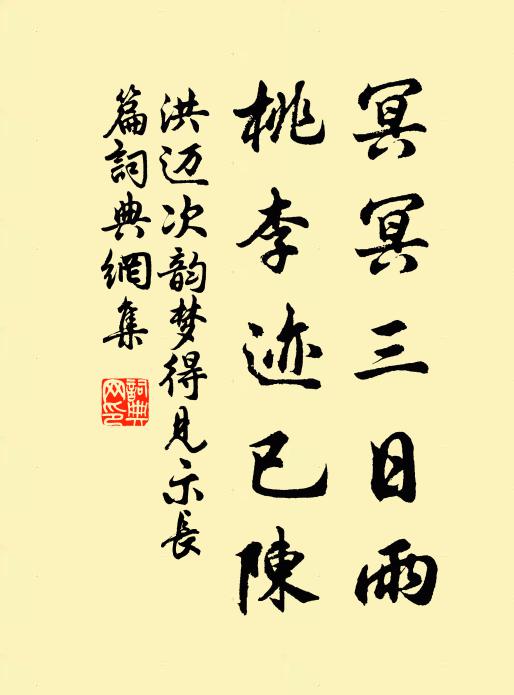 冥冥三日雨
桃李迹已陳
洪迈次韵梦得见示長
篇詞典網集
詞典网印